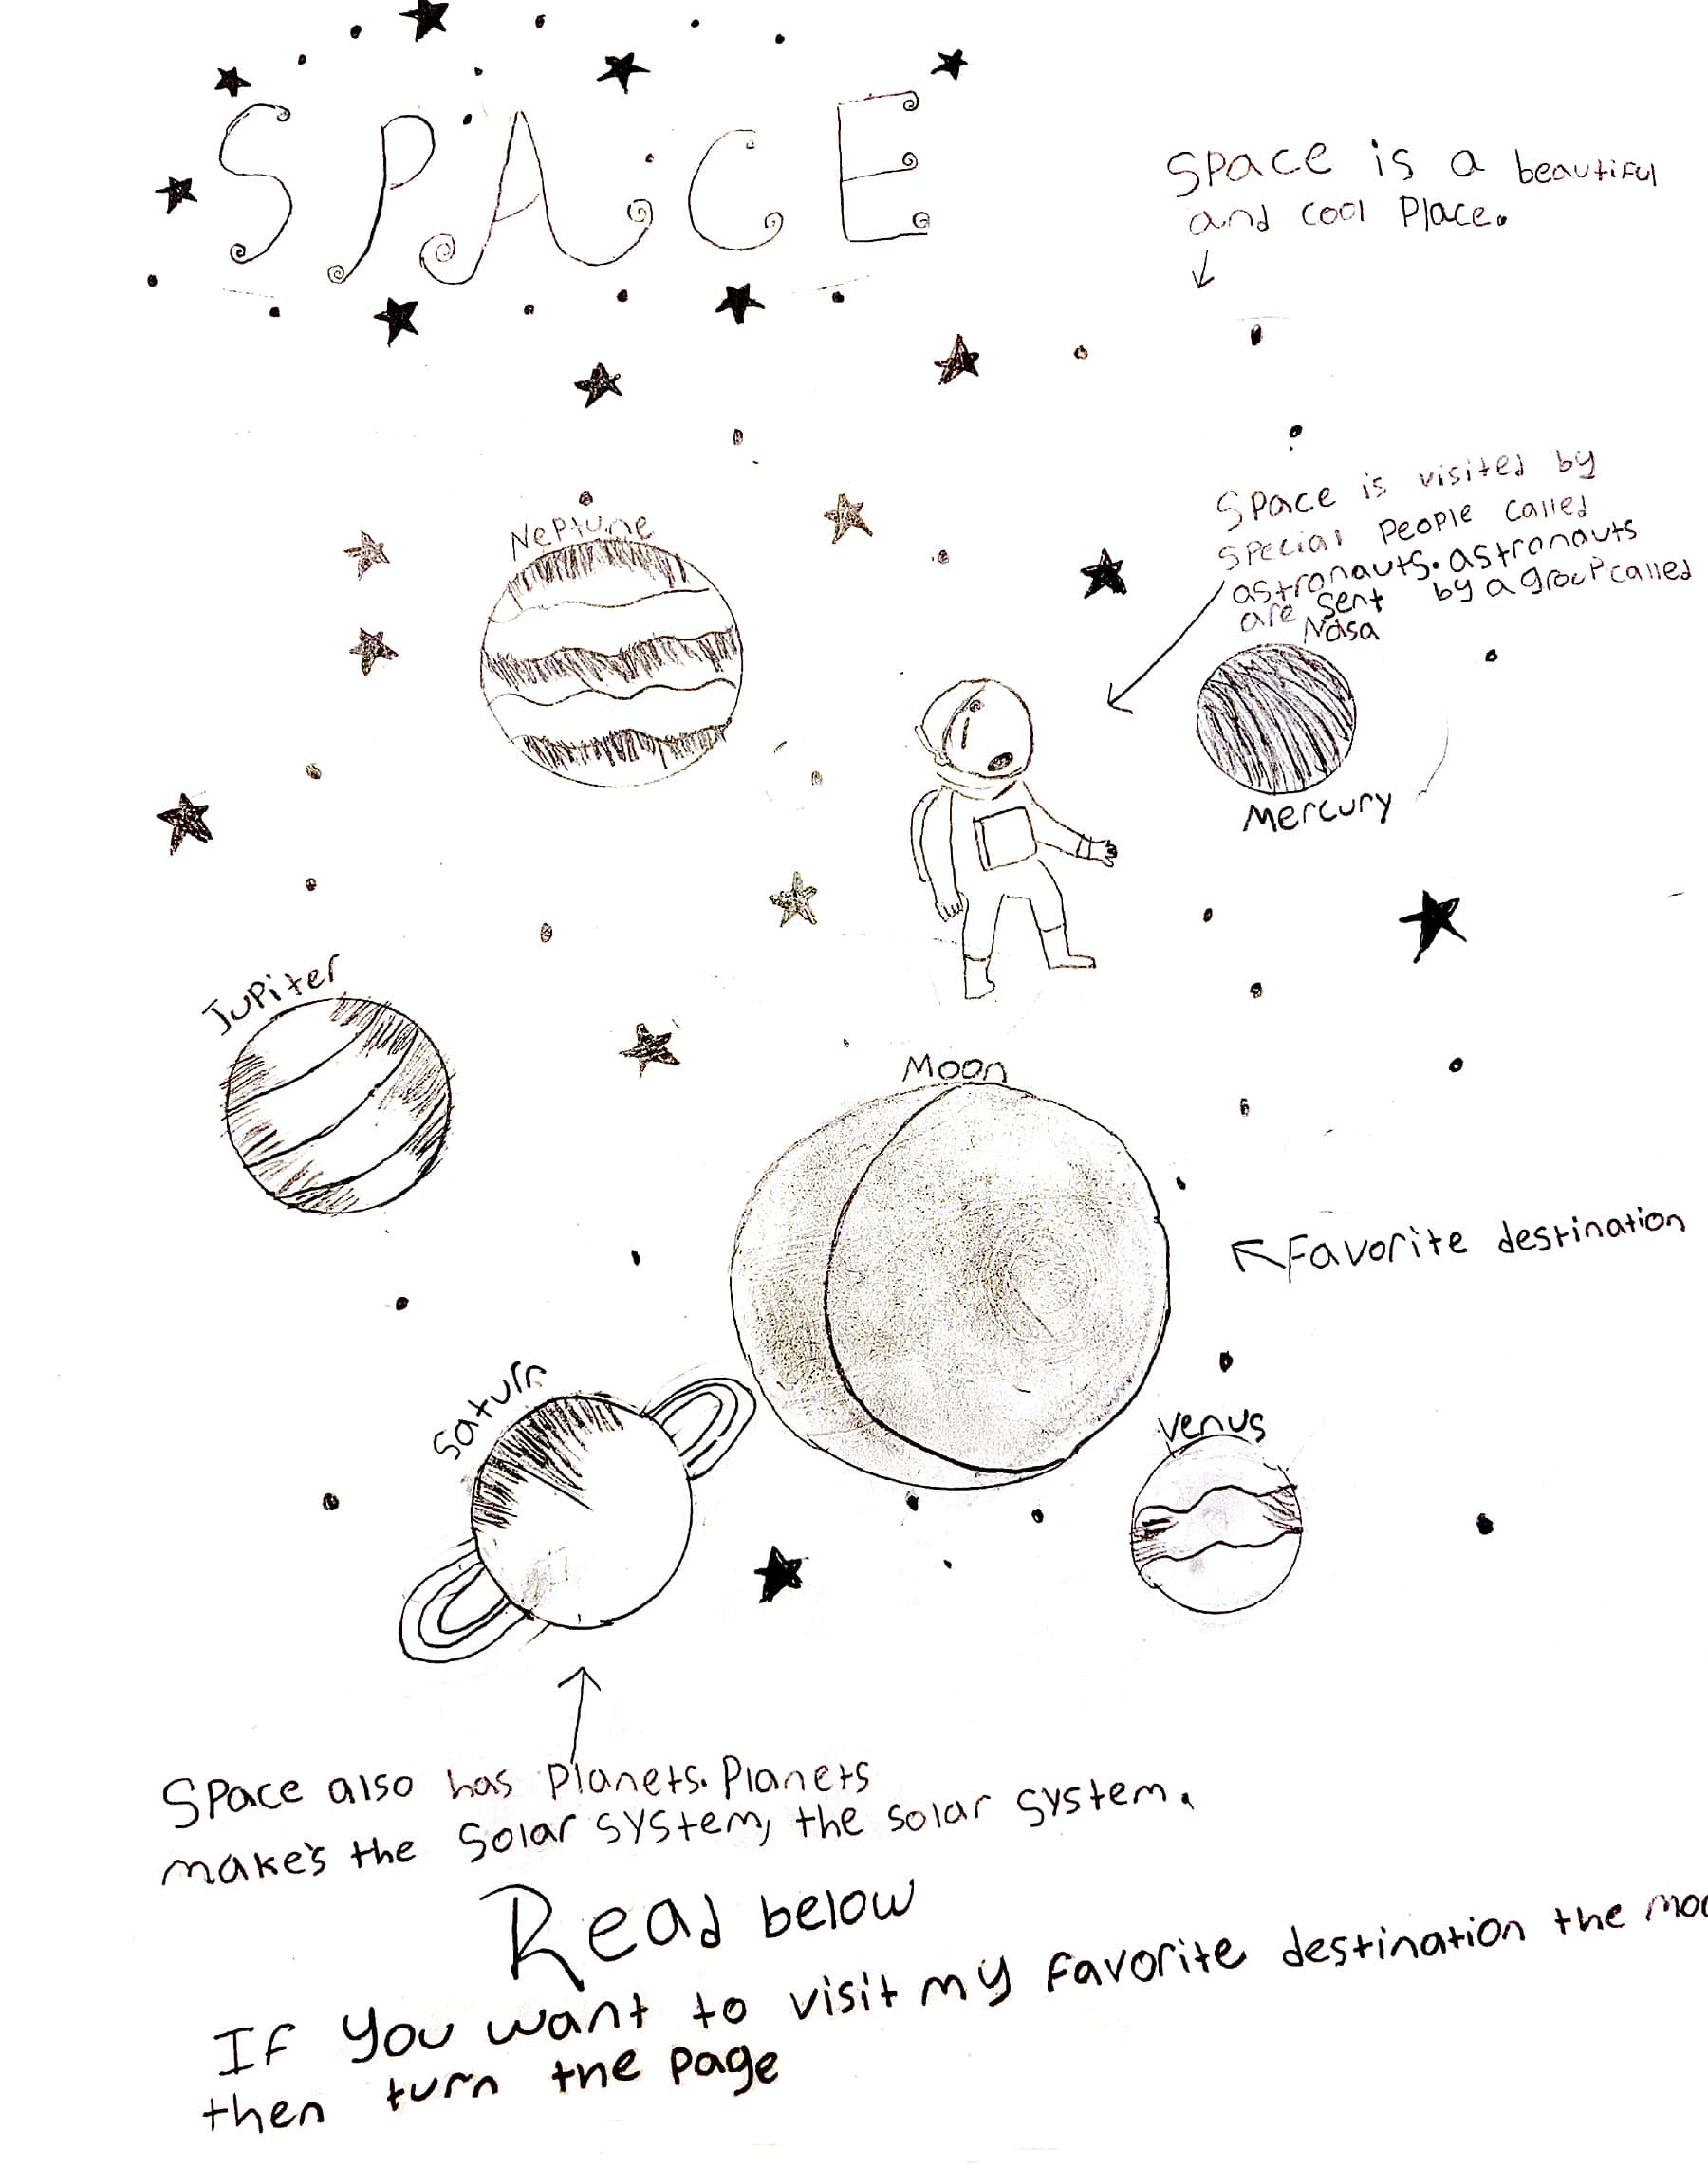 SPACE
Space is a beautiful
and cool Place.
Space is visited by
special People called
astronauts. astronauts
are sent by a group called
Nasa
Neptune
Mercury
Jupiter
Moon
Favorite destination
Saturn
Venus
Space also has Planets. Planets
make's the Solar system, the solar system.
Read below
If you want to visit my favorite destination the moo
then turn the page